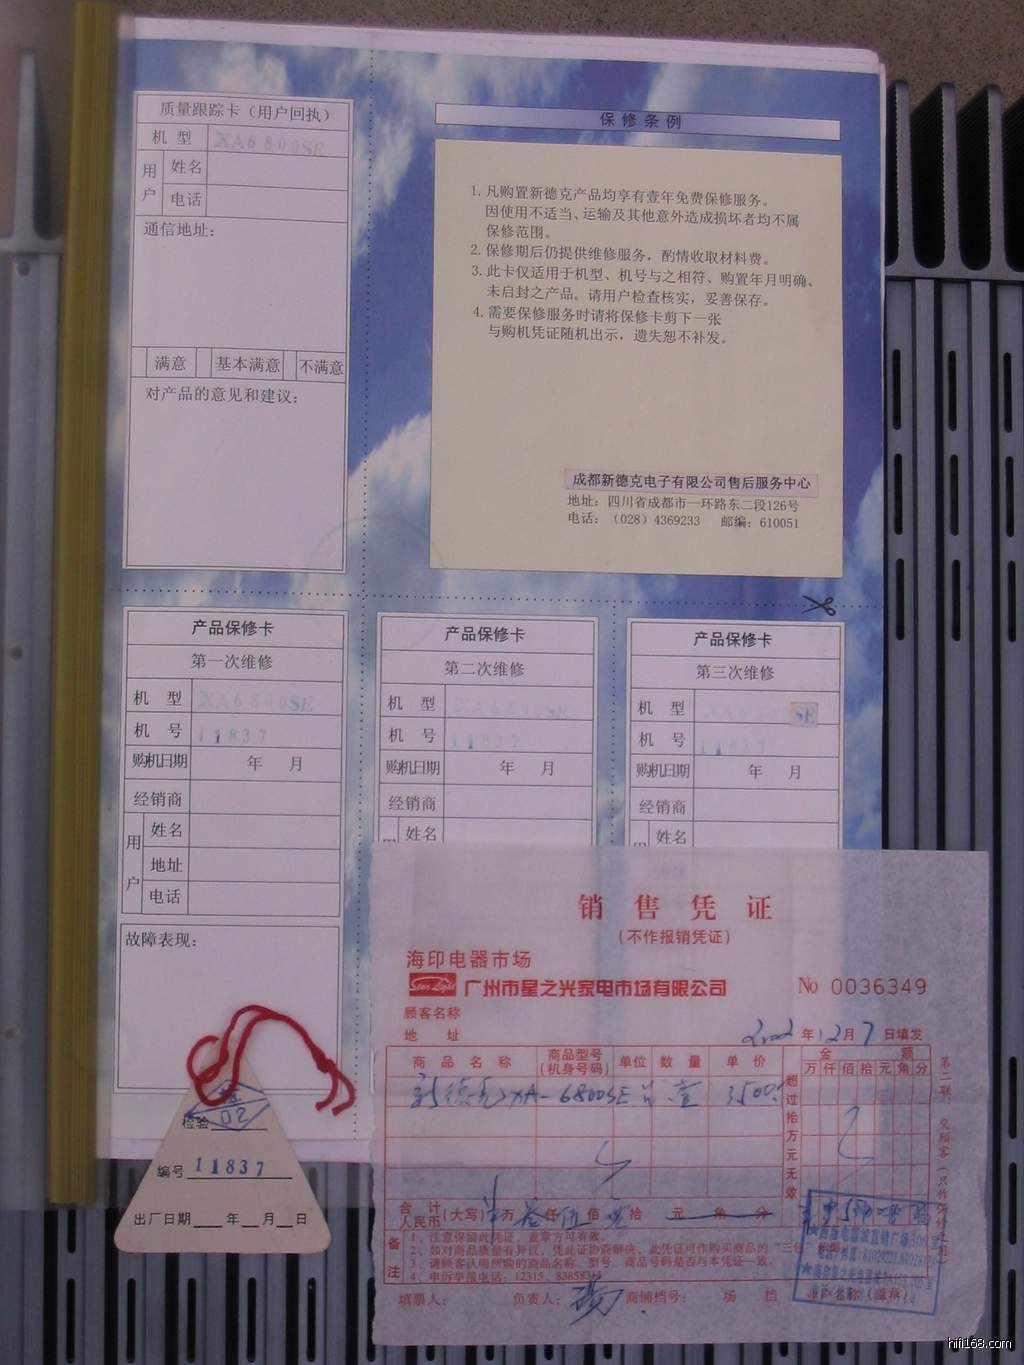 质量跟踪卡（用户回执）
机 型 XA6800SE
用户
姓名
电话
通信地址：
满意 基本满意 不满意
对产品的意见和建议：
保修条例
1. 凡购置新德克产品均享有壹年免费保修服务。
因使用不适当、运输及其他意外造成损坏者均不属
保修范围。
2. 保修期后仍提供维修服务，酌情收取材料费。
3. 此卡仅适用于机型、机号与之相符、购置年月明确、
未启封之产品。请用户检查核实，妥善保存。
4. 需要保修服务时请将保修卡剪下一张
与购机凭证随机出示，遗失恕不补发。
成都新德克电子有限公司售后服务中心
地址：四川省成都市一环路东二段126号
电话：（028）4369233 邮编：610051
产品保修卡
第一次维修
机 型 XA6800SE
机 号 11837
购机日期 年 月
经销商
用户
姓名
地址
电话
故障表现：
产品保修卡
第二次维修
机 型 XA6800SE
机 号 11837
购机日期 年 月
经销商
姓名
产品保修卡
第三次维修
机 型 XA6800SE
机 号 11837
购机日期 年 月
经销商
姓名
检验 02
编号 11837
出厂日期 年 月 日
销售凭证
（不作报销凭证）
海印电器市场
Star Light 广州市星之光家电市场有限公司
No 0036349
顾客名称
地 址
2002 年 12 月 7 日填发
商品名称 商品型号（机身号码） 单位 数量 单价 超过拾万元无效 金额
万 仟 佰 拾 元 角 分
新德克 XA-6800SE 台 壹 3500
合计人民币（大写） 万 叁仟 伍佰 拾 元 角 分
备注
1、注意保留此凭证，盖章方可有效。
2、如对商品质量有异议，凭此证协商解决，此凭证可作购买商品的“三包”
3、请顾客认明所购的商品名称、型号、商品号码是否与本凭证一致。
4、申诉举报电话：12315、83858315
填票人： 负责人： 商铺档号： 场 档
第二联：交顾客
hifi168.com